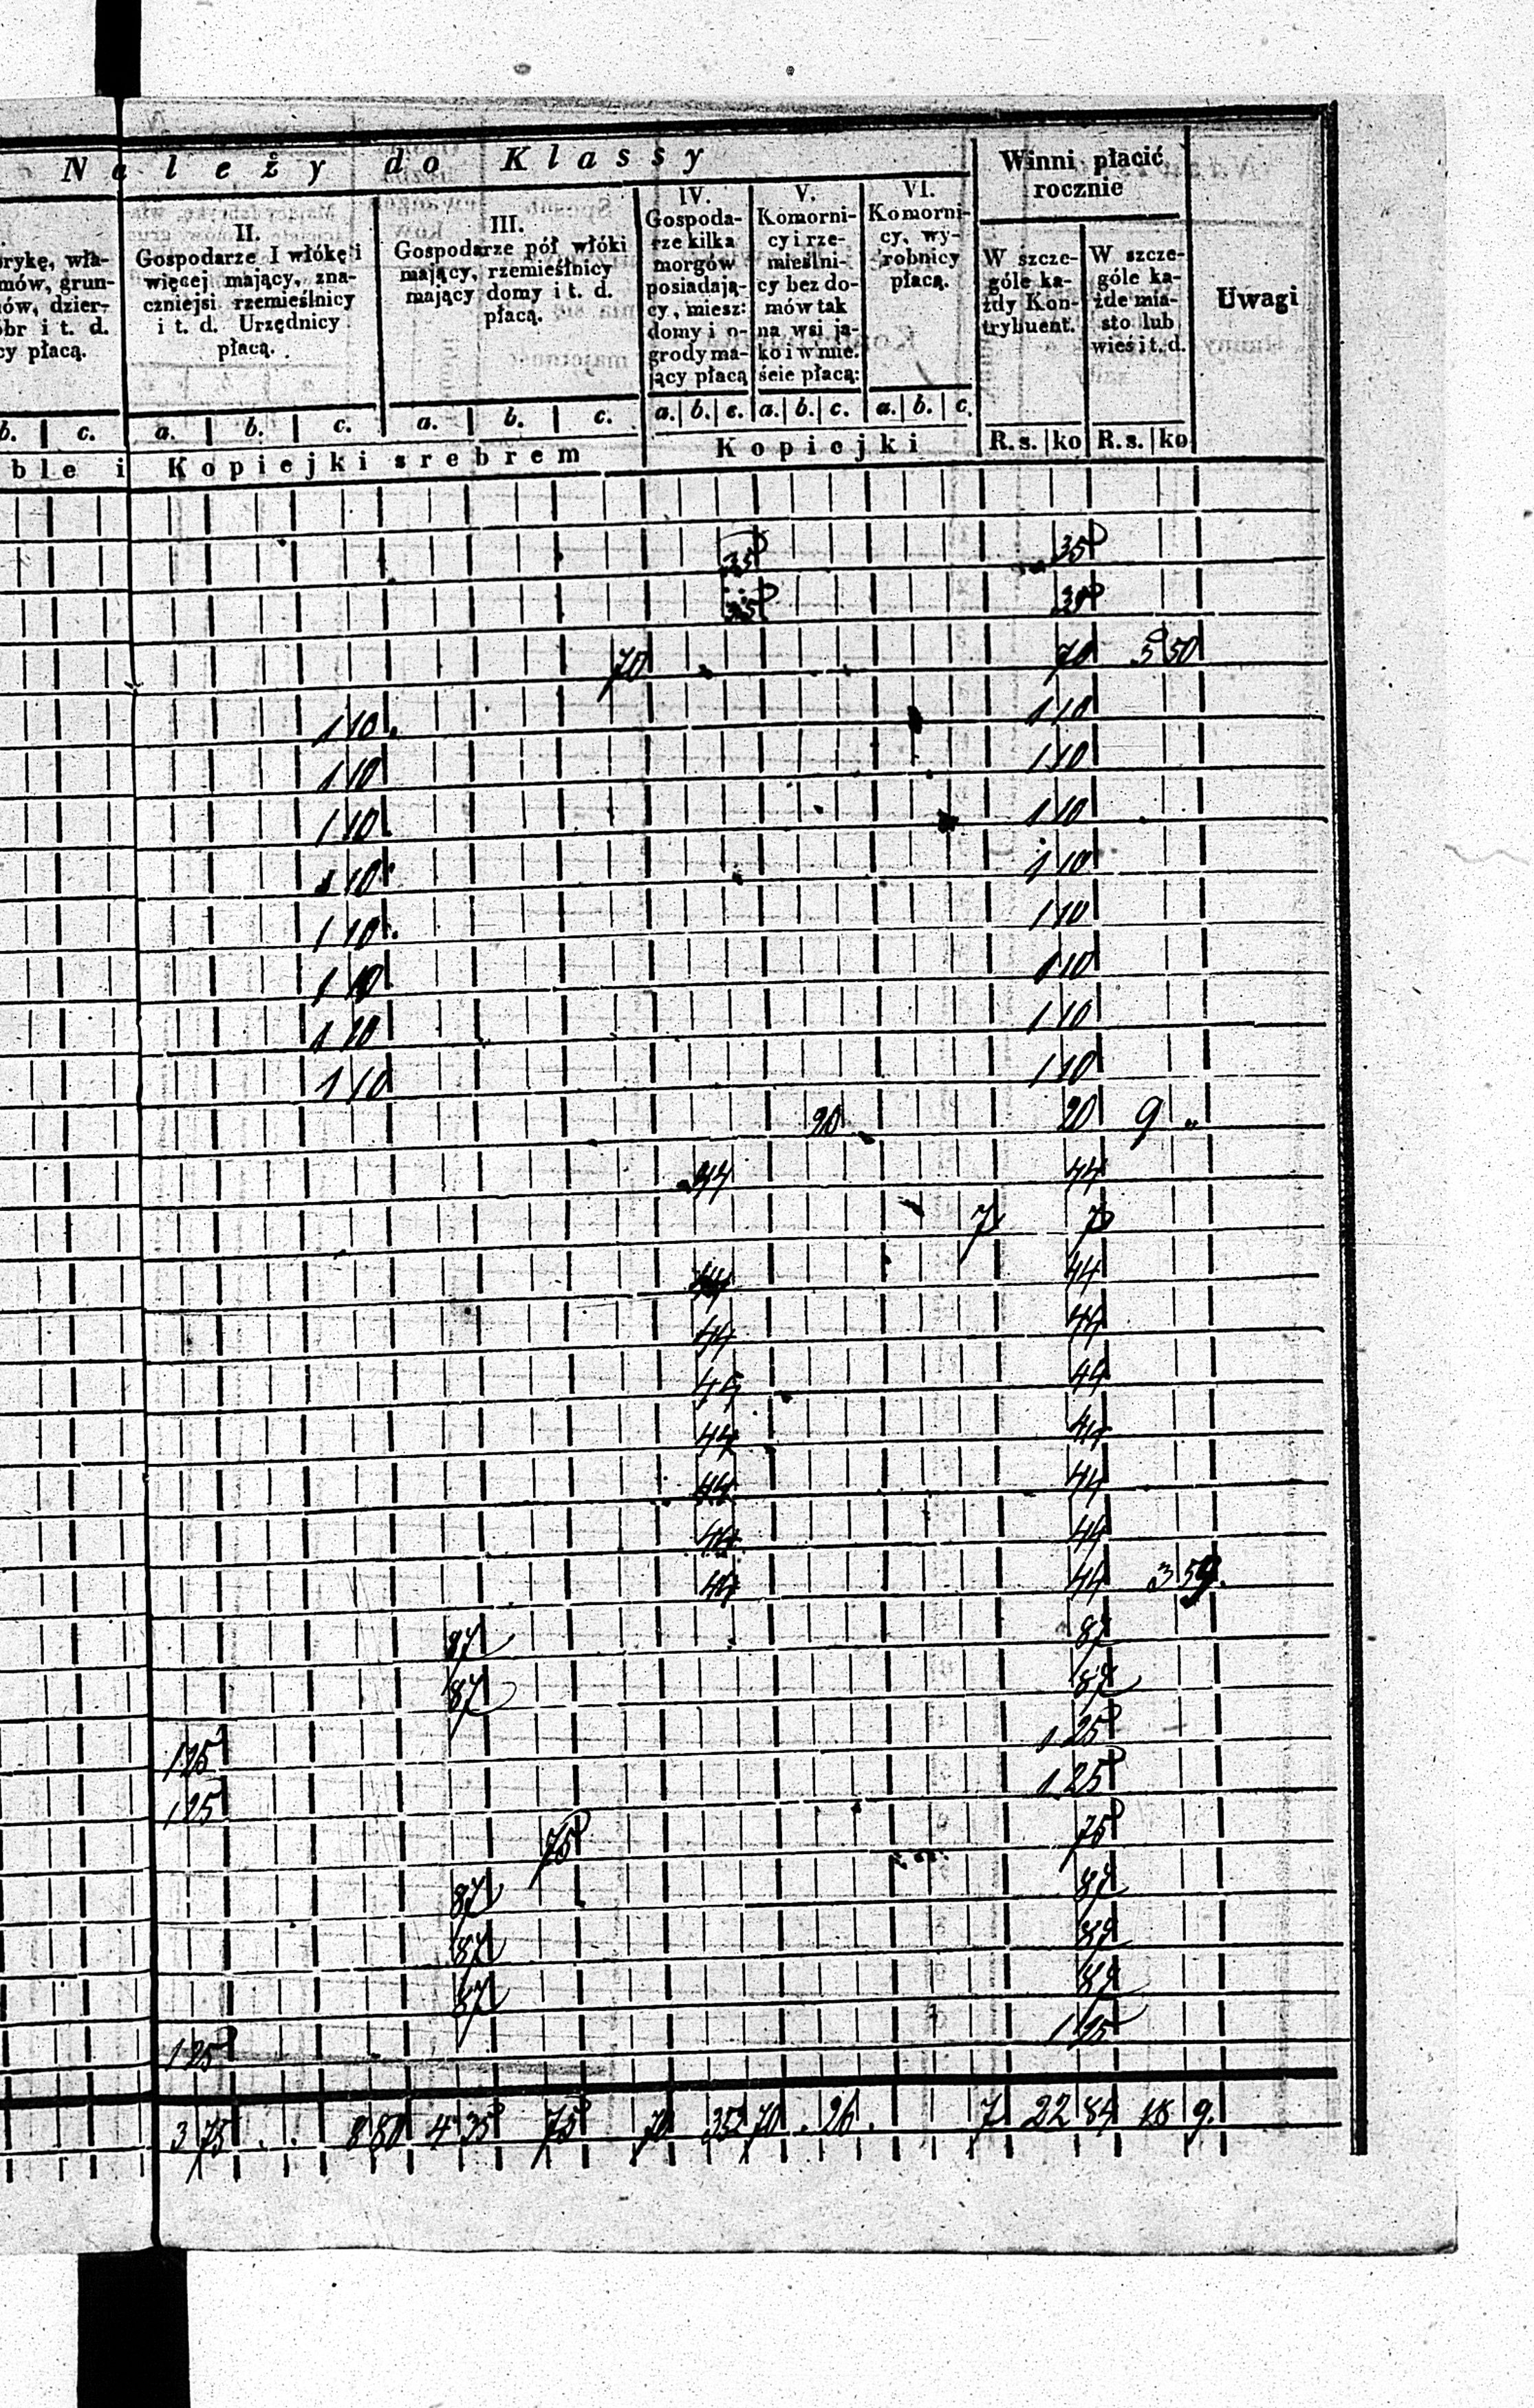 Należy do Klassy
Winni płacić
rocznie
Uwagi
rykę, wła-
mów, grun-
ów, dzier-
óbr i t. d.
cy płacą.
II.
Gospodarze I włókę i
więcej mający, zna-
czniejsi rzemieślnicy
i t. d. Urzędnicy
płacą.
III.
Gospodarze pół włóki
mający, rzemieślnicy
mający domy i t. d.
płacą.
IV.
Gospoda-
rze kilka
morgów
posiadają-
cy, miesz:
domy i o-
grody ma-
jący płacą
V.
Komorni-
cy i rze-
mieślni-
cy bez do-
mów tak
na wsi ja-
ko i w mie:
ście płacą:
VI.
Komorni-
cy, wy-
robnicy
płacą.
W szcze-
góle ka-
żdy Kon-
trybuent.
W szcze-
góle ka-
żde mia-
sto lub
wieś i t. d.
b. c. a. b. c. a. b. c. a. b. c. a. b. c. a. b. c.
ble i Kopiejki srebrem Kopiejki R.s. ko R.s. ko
35 35
35 35
70 70 3 50
1 10 1 10
1 10 1 10
1 10 1 10
1 10 1 10
1 10 1 10
1 10 1 10
1 10 1 10
1 10 1 10
20 20 9 "
44 44
7 7
44 44
44 44
44 44
44 44
44 44
44 44
44 44 3 59.
87 87
87 87
1 25 1 25
1 25 1 25
75 75
87 87
87 87
87 87
1 25 1 25
3 75 . . 8 80 4 35 75 70 352 70 . 20 . 7 22 84 9.